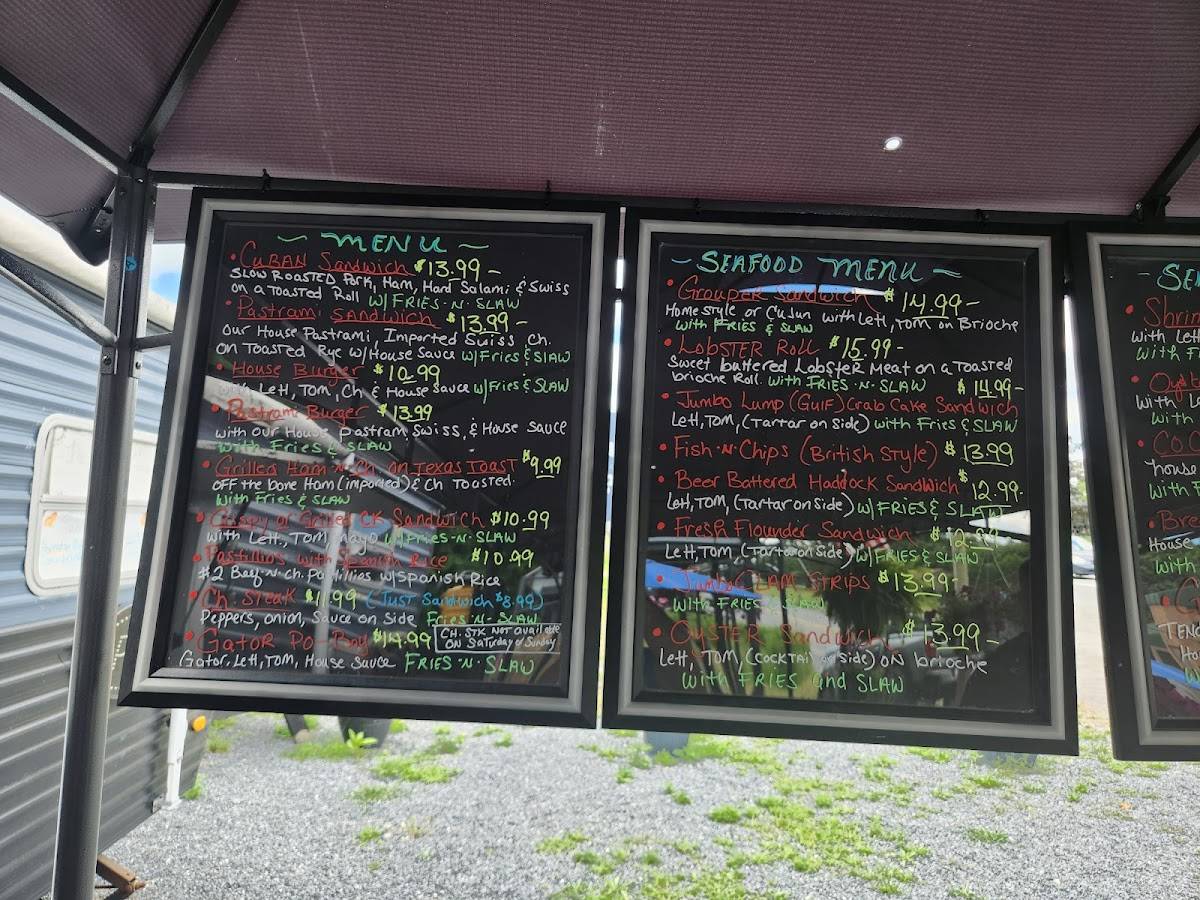 ~ MENU ~
• CUBAN Sandwich $13.99 -
SLOW ROASTED Pork, Ham, Hard Salami & Swiss
on a Toasted Roll W/FRIES·N·SLAW
• Pastrami SANDWICH $13.99 -
Our House Pastrami, Imported Swiss Ch.
ON Toasted Rye W/House Sauce W/Fries & SLAW
• House Burger $10.99
with Lett, Tom, Ch & House Sauce w/Fries & SLAW
• Pastrami Burger $13.99
with our House pastrami, Swiss, & House Sauce
with Fries & SLAW
• Grilled Ham·N·Ch. on Texas Toast $9.99
OFF the bone Ham (imported) & Ch Toasted.
With Fries & SLAW
• Crispy or Grilled CK Sandwich $10.99
with Lett, Tom, Mayo w/FRIES·N·SLAW
• Pastillios with Spanish Rice $10.99
#2 Beef·N·ch. pastillios w/SPANISH Rice
• Ch. Steak $11.99 (JUST Sandwich $8.99)
Peppers, onion, Sauce on Side Fries·N·SLAW
• Gator Po-Boy $14.99 CH. STK NOT available ON Saturday or Sunday
Gator, Lett, TOM, House Sauce FRIES·N·SLAW
- SEAFOOD MENU -
• Grouper Sandwich $14.99 -
Home style or CuJun with Lett, Tom on Brioche
with FRIES & SLAW
• LOBSTER Roll $15.99 -
Sweet buttered LobsteR Meat on a Toasted
brioche Roll. with FRIES·N·SLAW $14.99 -
• Jumbo Lump (Gulf) Crab Cake Sandwich
Lett, TOM, (Tartar on Side) with Fries & SLAW
• Fish·N·Chips (British Style) $13.99
• Beer Battered Haddock SANDWich $12.99.
Lett, TOM, (Tartar on Side) W/FRIES & SLAW
• Fresh Flounder Sandwich
Lett, TOM, (Tartar on Side) W/FRIES & SLAW
• Jumbo CLAM STRIPS $13.99 -
with FRIES & SLAW
• OYSTER Sandwich $13.99 -
Lett, TOM, (Cocktail on side) ON brioche
with FRIES and SLAW
House